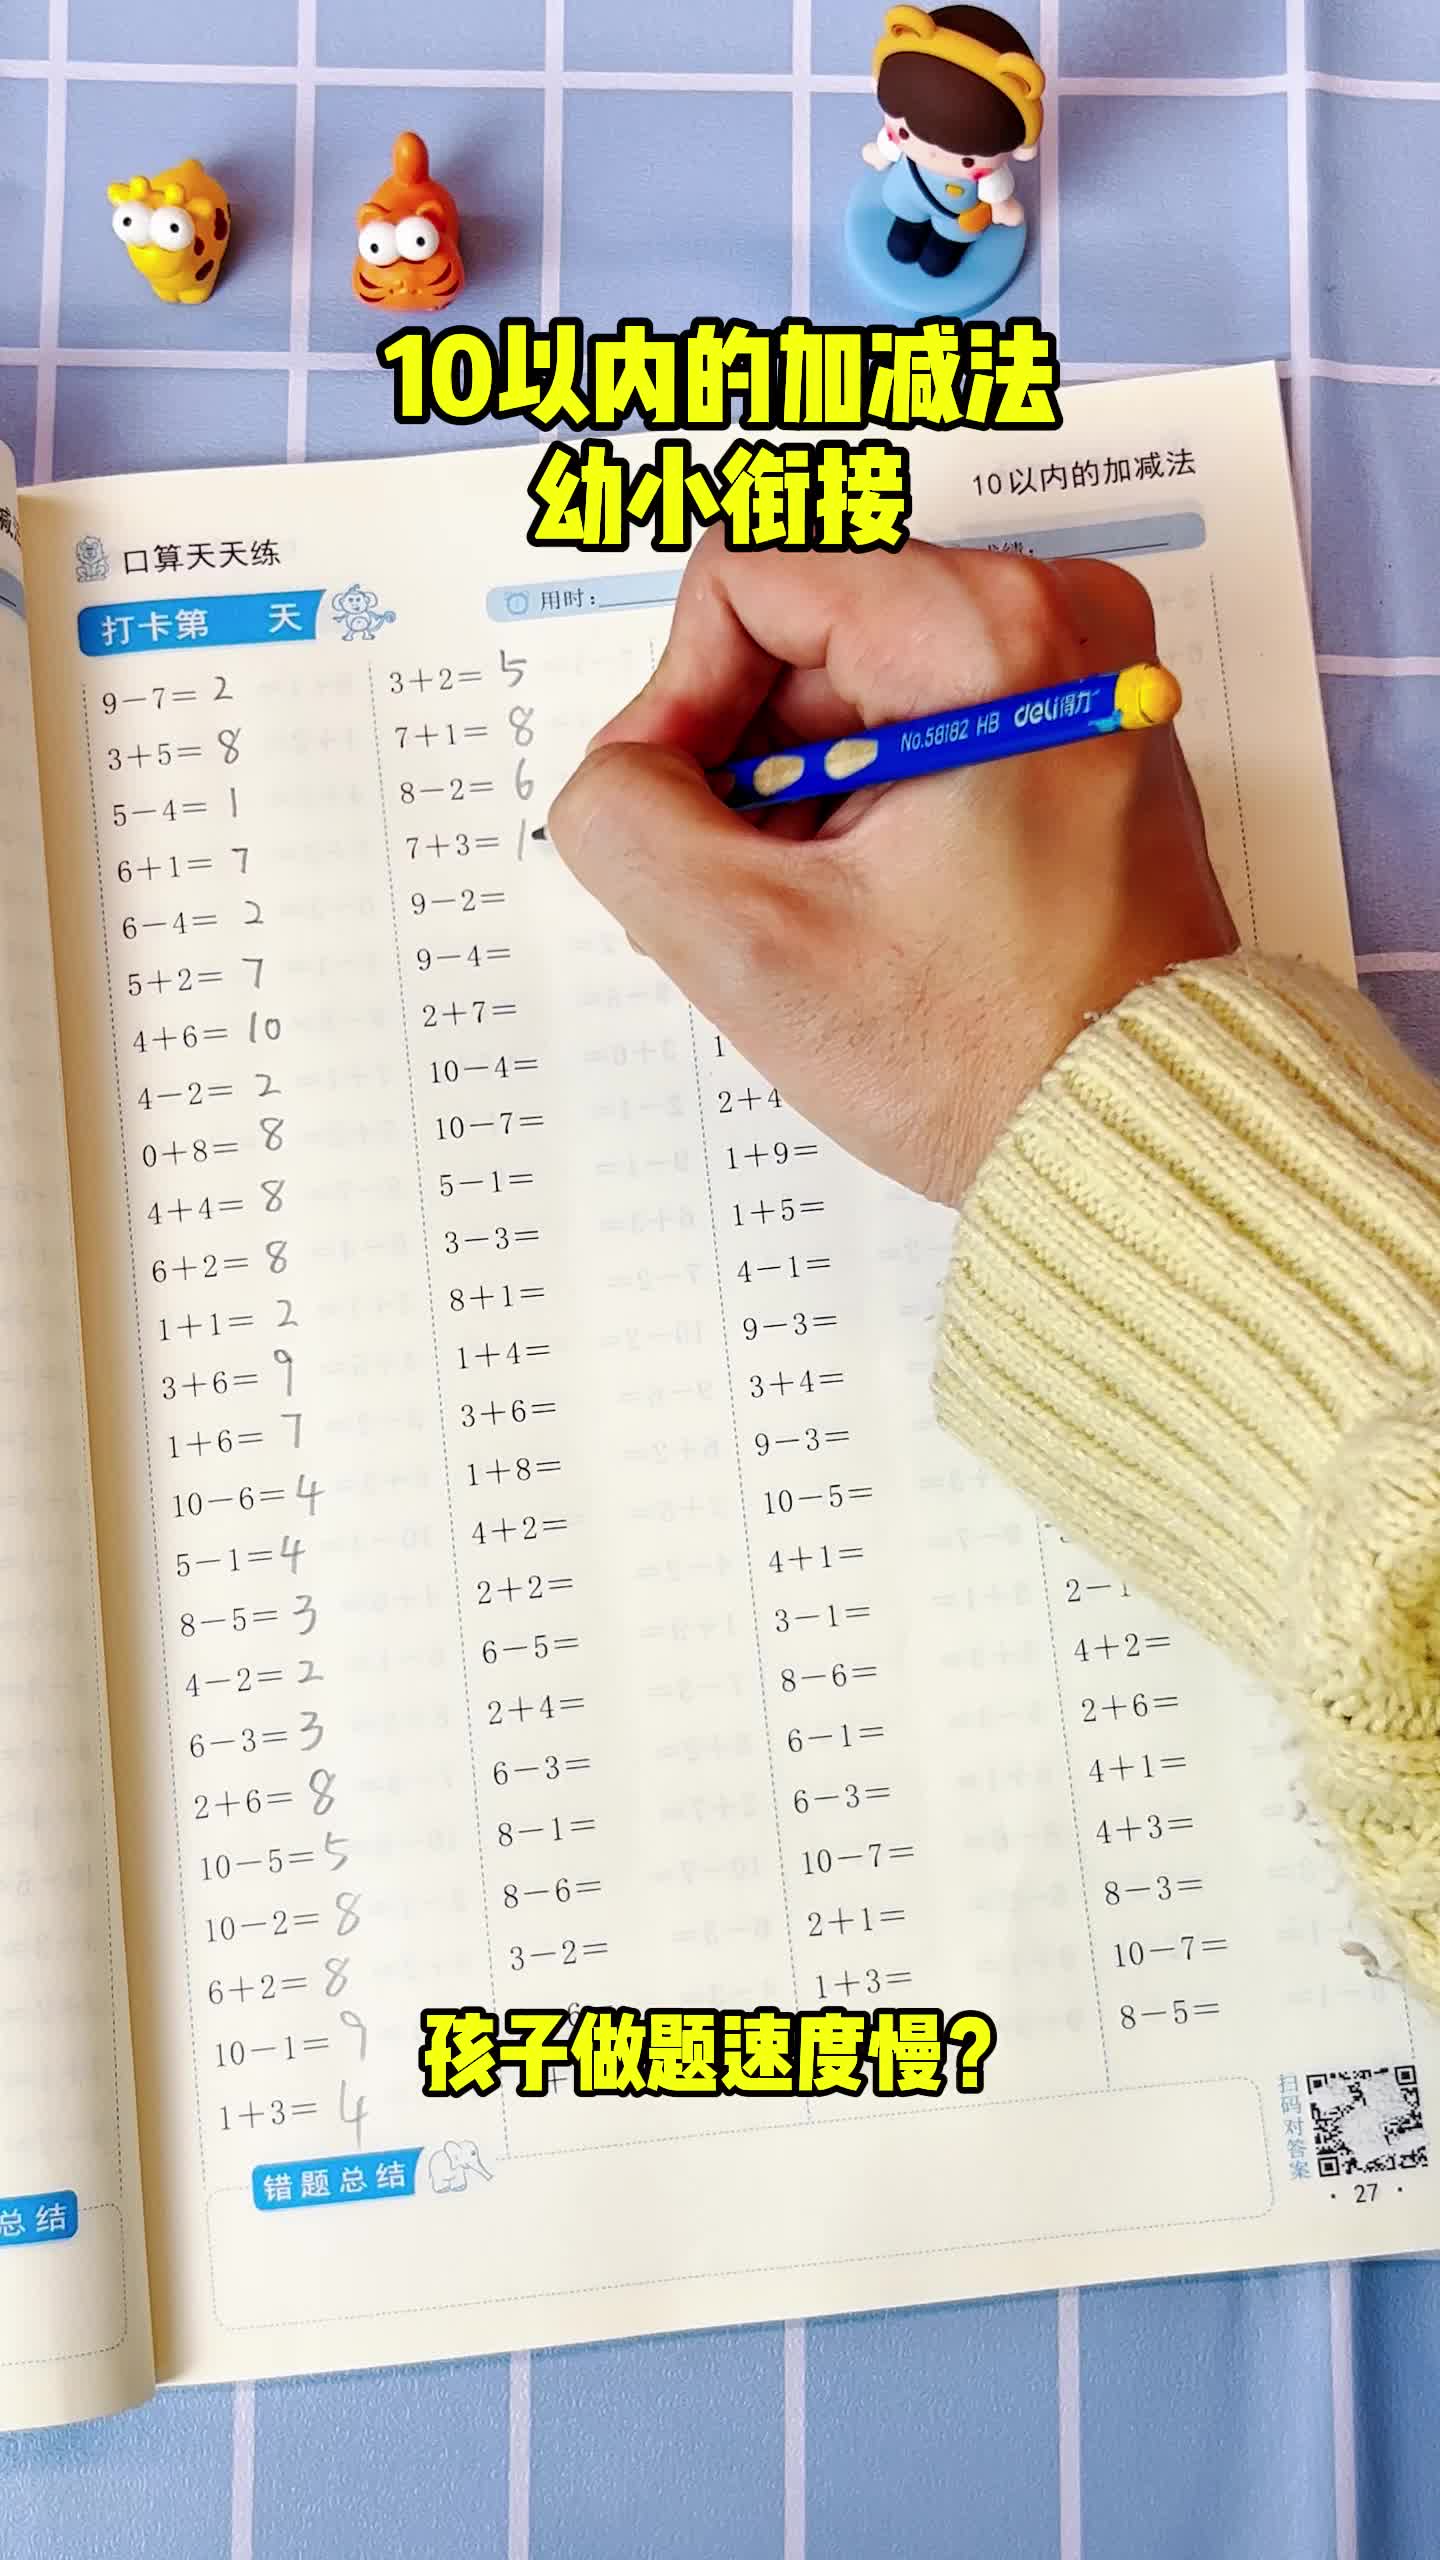 10以内的加减法
幼小衔接
10以内的加减法
口算天天练
打卡第 天
用时:
No.58182 HB deli得力
9-7=2
3+5=8
5-4=1
6+1=7
6-4=2
5+2=7
4+6=10
4-2=2
0+8=8
4+4=8
6+2=8
1+1=2
3+6=9
1+6=7
10-6=4
5-1=4
8-5=3
4-2=2
6-3=3
2+6=8
10-5=5
10-2=8
6+2=8
10-1=9
1+3=4
3+2=5
7+1=8
8-2=6
7+3=1
9-2=
9-4=
2+7=
10-4=
10-7=
5-1=
3-3=
8+1=
1+4=
3+6=
1+8=
4+2=
2+2=
6-5=
2+4=
6-3=
8-1=
8-6=
3-2=
2+4
1+9=
1+5=
4-1=
9-3=
3+4=
9-3=
10-5=
4+1=
3-1=
8-6=
6-1=
6-3=
10-7=
2+1=
1+3=
2-1
4+2=
2+6=
4+1=
4+3=
8-3=
10-7=
8-5=
孩子做题速度慢?
错题总结
总结
扫码对答案
·27·